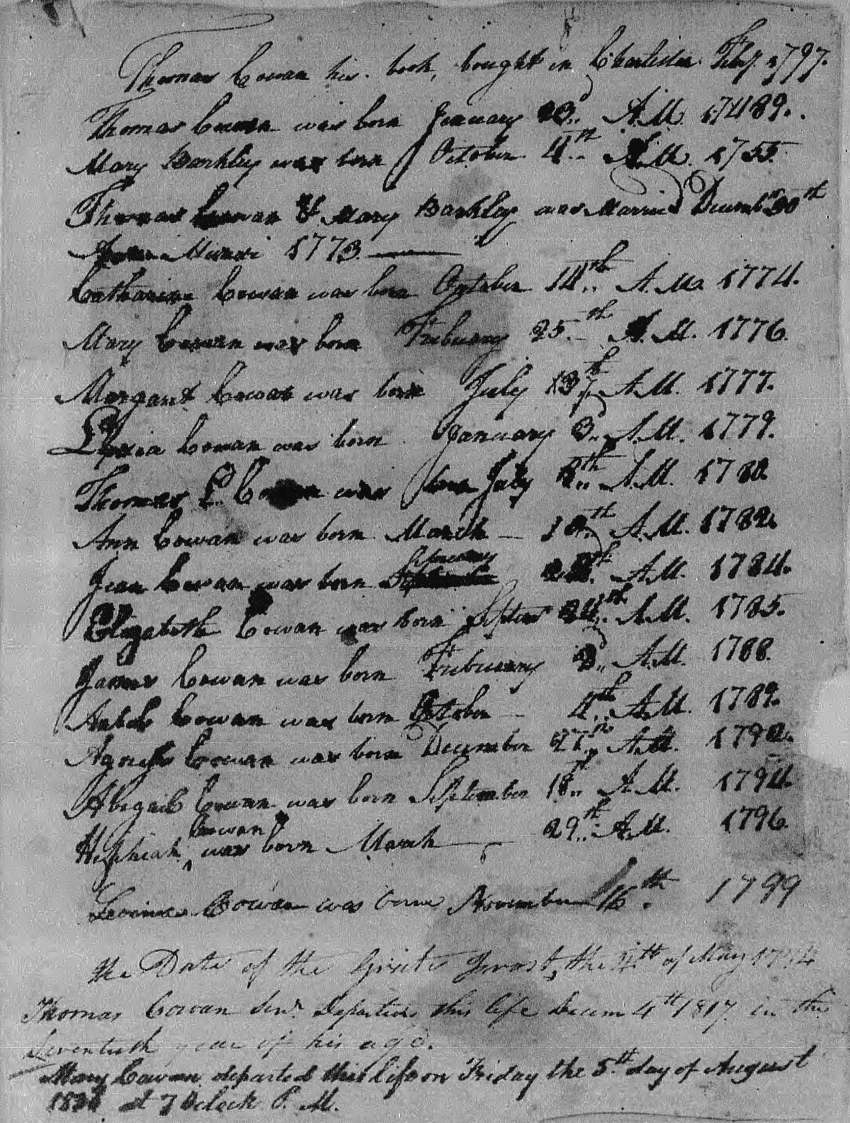 Thomas Cowan his book, bought in Charleston Feby 1797.
Thomas Cowan was born January A.M. 1748
Mary Barkley was born October 4th A.M. 1755
Thomas Cowan & Mary Barkley was Married Decemb 30th
1773
Catharine Cowan was born October 14th A.M. 1774.
Mary Cowan was born Febuary 25th A.M. 1776
Margaret Cowan was born July 13th A.M. 1777.
Cowan was born January 3d A.M. 1779.
Thomas L. Cowan was born July A.M. 1780
Ann Cowan was born March 10th A.M. 1782
Jean Cowan was born A.M. 1784.
Elizabeth Cowan was born Septem 24th A.M. 1785.
James Cowan was born Febuary A.M. 1788.
Cowan was born October 4th A.M. 1789.
Agness Cowan was born December 27th A.M.
Abegail Cowan was born September 18th A.M. 1794.
Cowan was born March 29th A.M. 1796
Cowan was borne November 16th 1799
the Date of the Great frost, the of May
Thomas Cowan Senr. Departed this life Decem 4th 1817 in the
Seventieth year of his age.
Mary Cowan departed this life on Friday the 5th day of August
at 7 Oclock P. M.